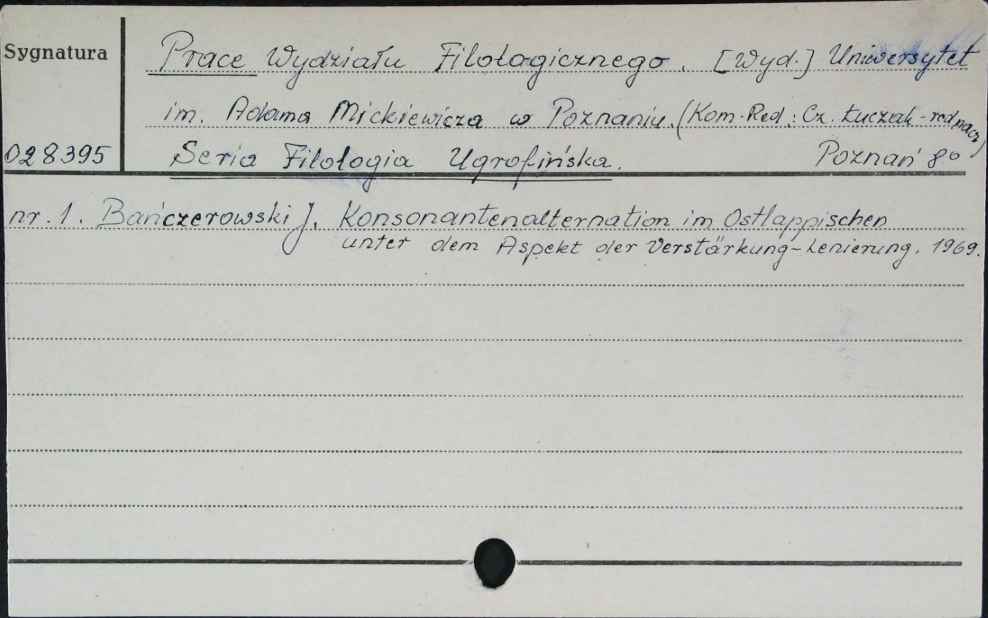 Sygnatura
Prace Wydziału Filologicznego. [Wyd.] Uniwersytet
im. Adama Mickiewicza w Poznaniu. (Kom. Red.: Cz. Łuczak - red nacz)
028395
Seria Filologia Ugrofińska. Poznań 8°
nr. 1. Bańczerowski J. Konsonantenalternation im Ostlappischen
unter dem Aspekt der Verstärkung-Lenierung. 1969.